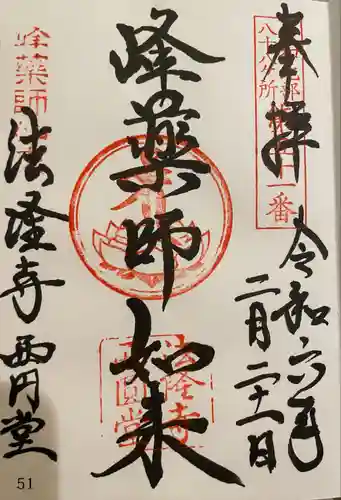 奉拝
令和六年
二月二十一日
峰薬師如来
法隆寺西円堂
峰薬師
法隆寺
西圓堂
八十八ヶ所
一番
51